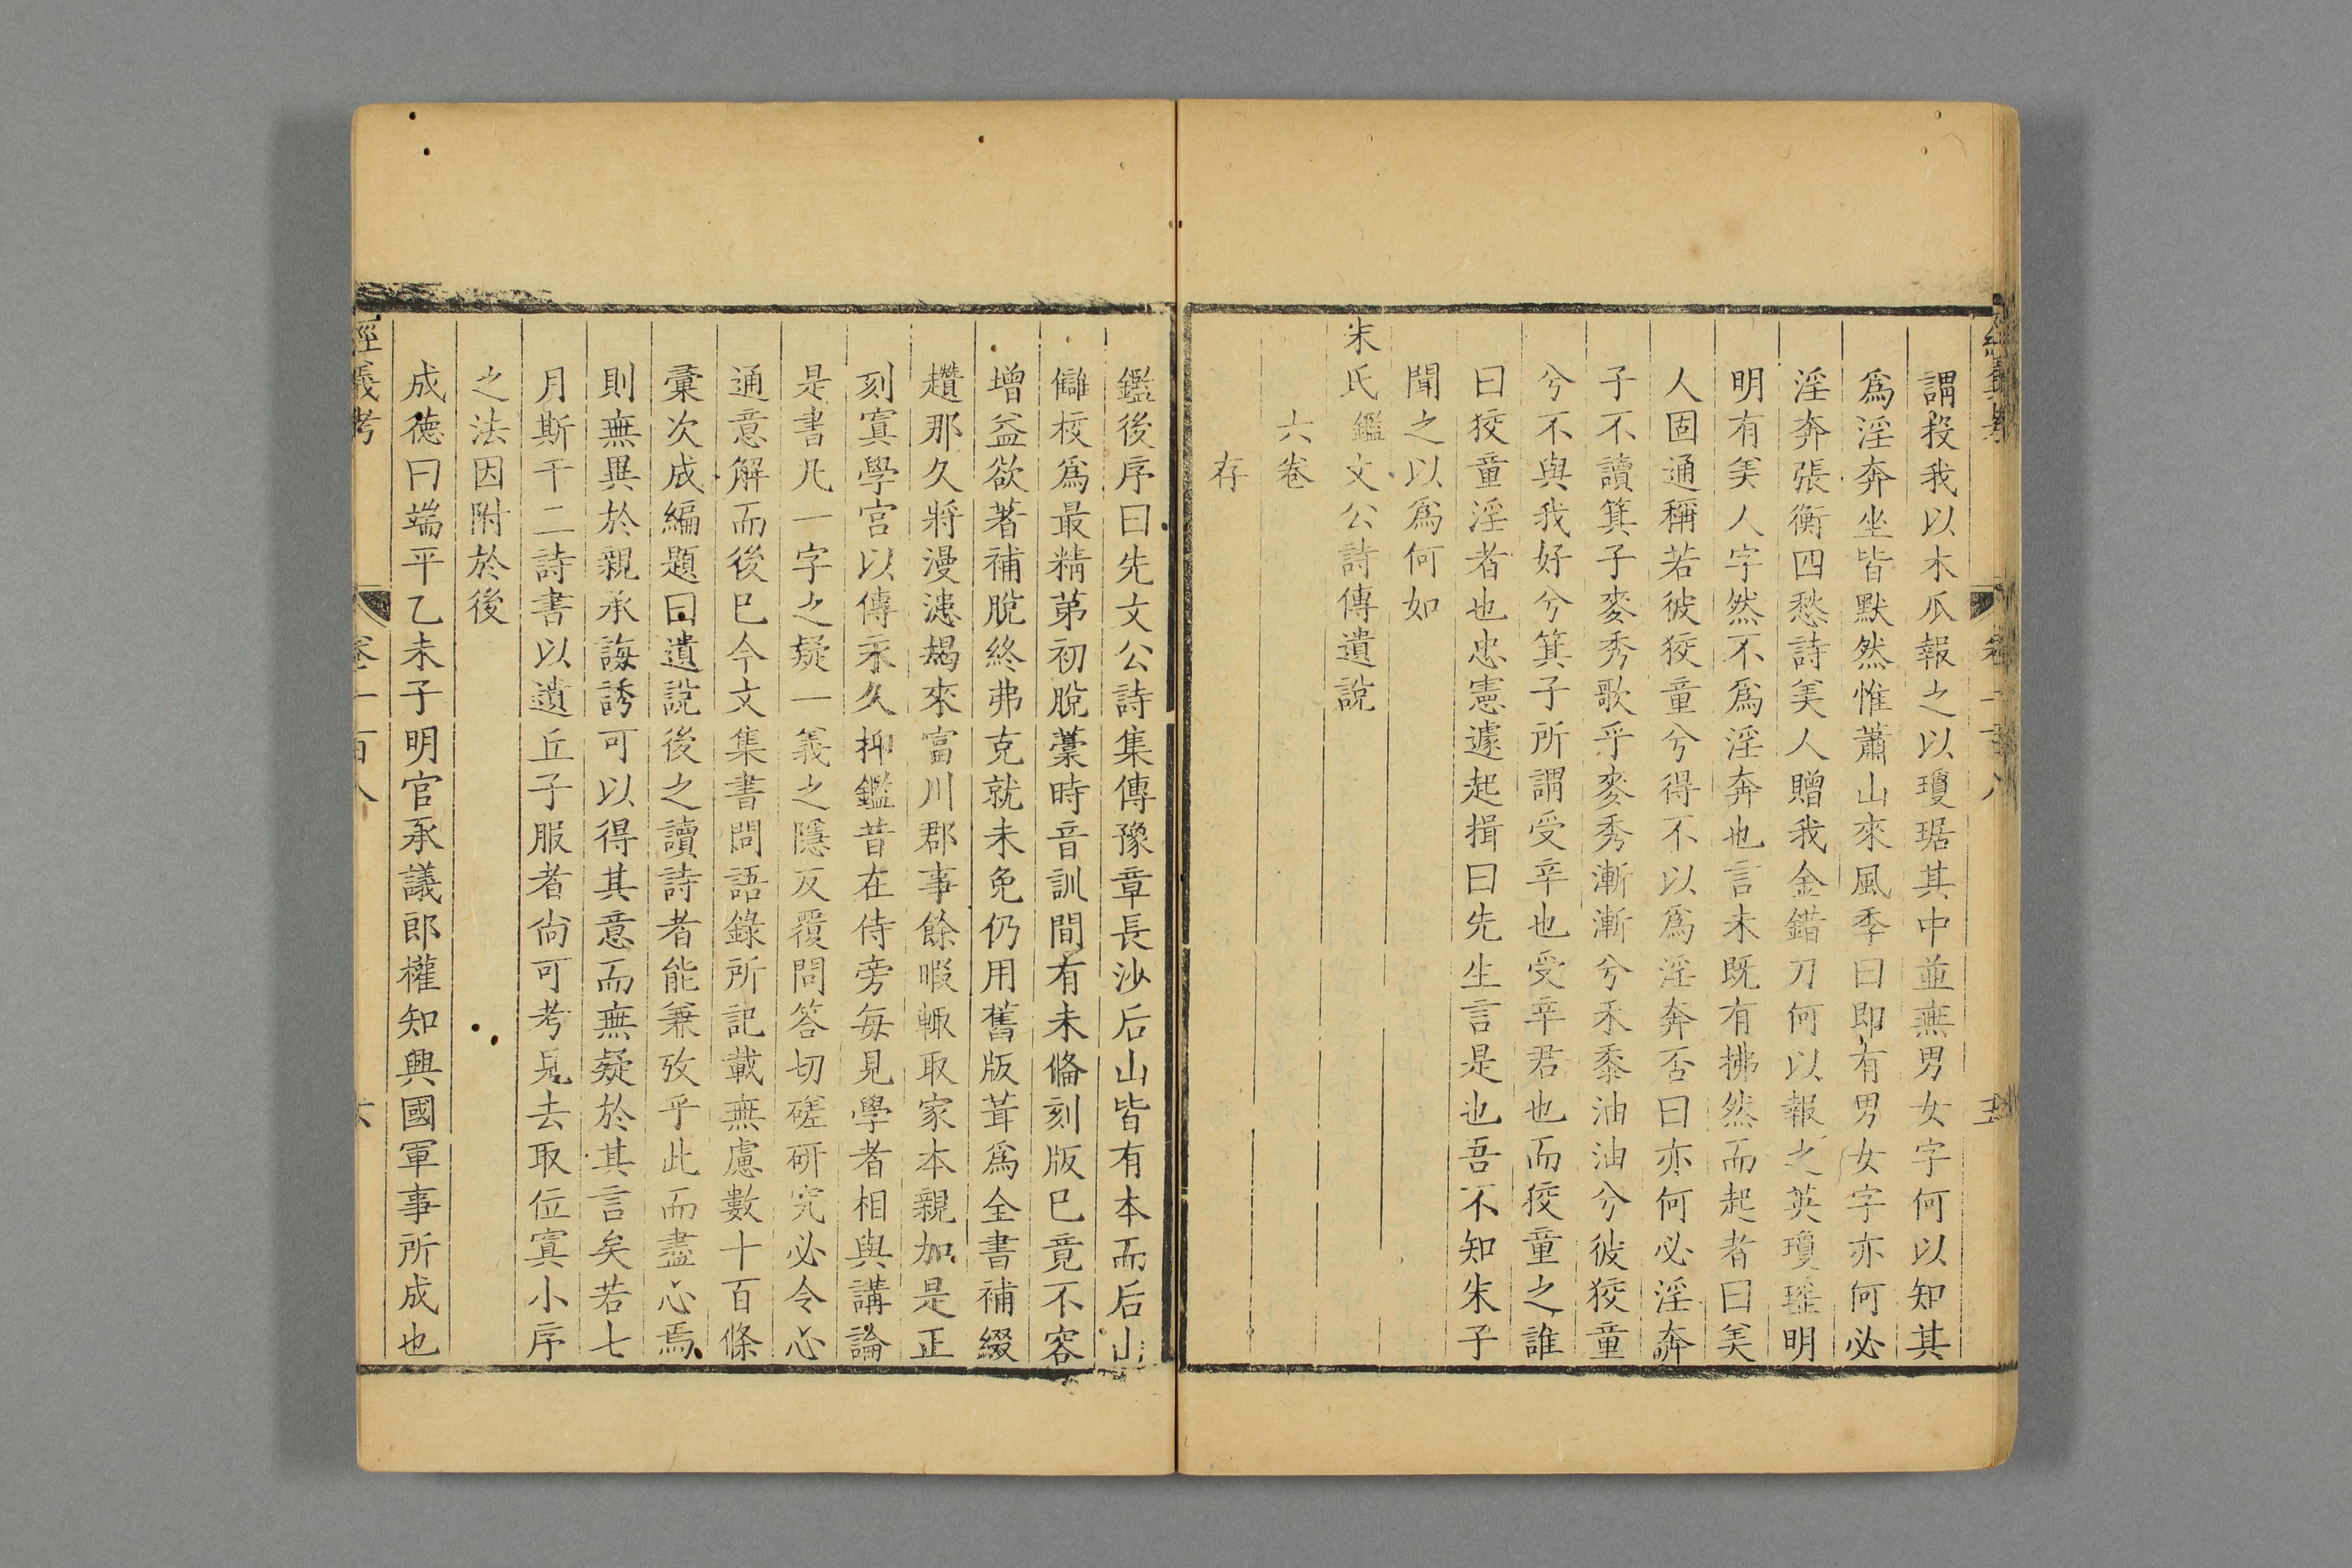 謂投我以木瓜報之以瓊琚其中並無男女字何以知其
爲淫奔坐皆默然惟蕭山來風季曰即有男女字亦何必
淫奔張衡四愁詩美人贈我金錯刀何以報之英瓊瑤明
明有美人字然不爲淫奔也言未既有拂然而起者曰美
人固通稱若彼狡童兮得不以爲淫奔否曰亦何必淫奔
子不讀箕子麥秀歌乎麥秀漸漸兮禾黍油油兮彼狡童
兮不與我好兮箕子所謂受辛也受辛君也而狡童之誰
曰狡童淫者也忠憲遽起揖曰先生言是也吾不知朱子
聞之以爲何如
朱氏鑑文公詩傳遺說
六卷
存
鑑後序曰先文公詩集傳豫章長沙后山皆有本而后山
讎校爲最精第初脫藁時音訓間有未備刻版已竟不容
增益欲著補脫終弗克就未免仍用舊版葺爲全書補綴
趲那久將漫漶朅來富川郡事餘暇輒取家本親加是正
刻寘學宮以傳永久抑鑑昔在侍旁每見學者相與講論
是書凡一字之疑一義之隱反覆問答切磋研究必令心
通意解而後已今文集書問語錄所記載無慮數十百條
彙次成編題曰遺說後之讀詩者能兼攷乎此而盡心焉
則無異於親承誨誘可以得其意而無疑於其言矣若七
月斯干二詩書以遺丘子服者尙可考見去取位寘小序
之法因附於後
成德曰端平乙未子明官承議郎權知興國軍事所成也
經義考
卷一百八
六